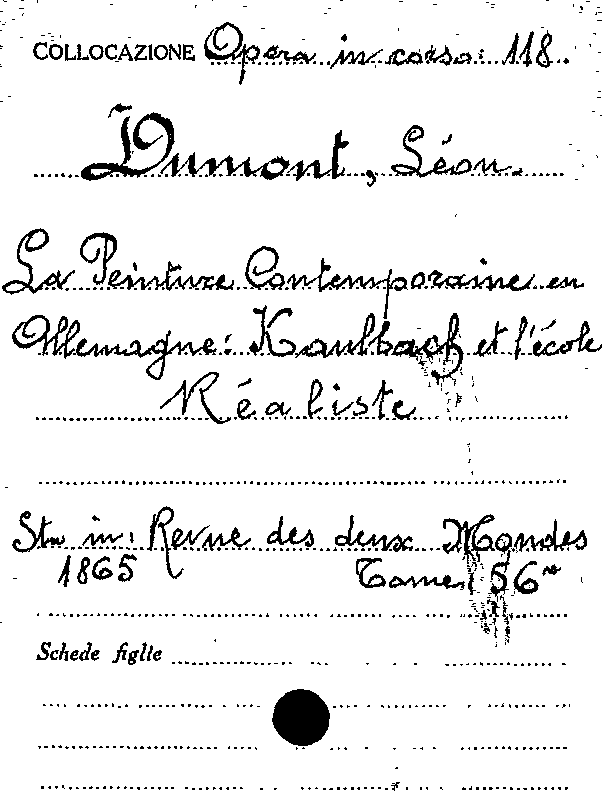 COLLOCAZIONE Opera in corso: 118.
Dumont, Léon.
La Peinture Contemporaine en
Allemagne: Kaulbach et l'école
Réaliste
Sta in: Revue des deux Mondes
1865 Tome 56
Schede figlie